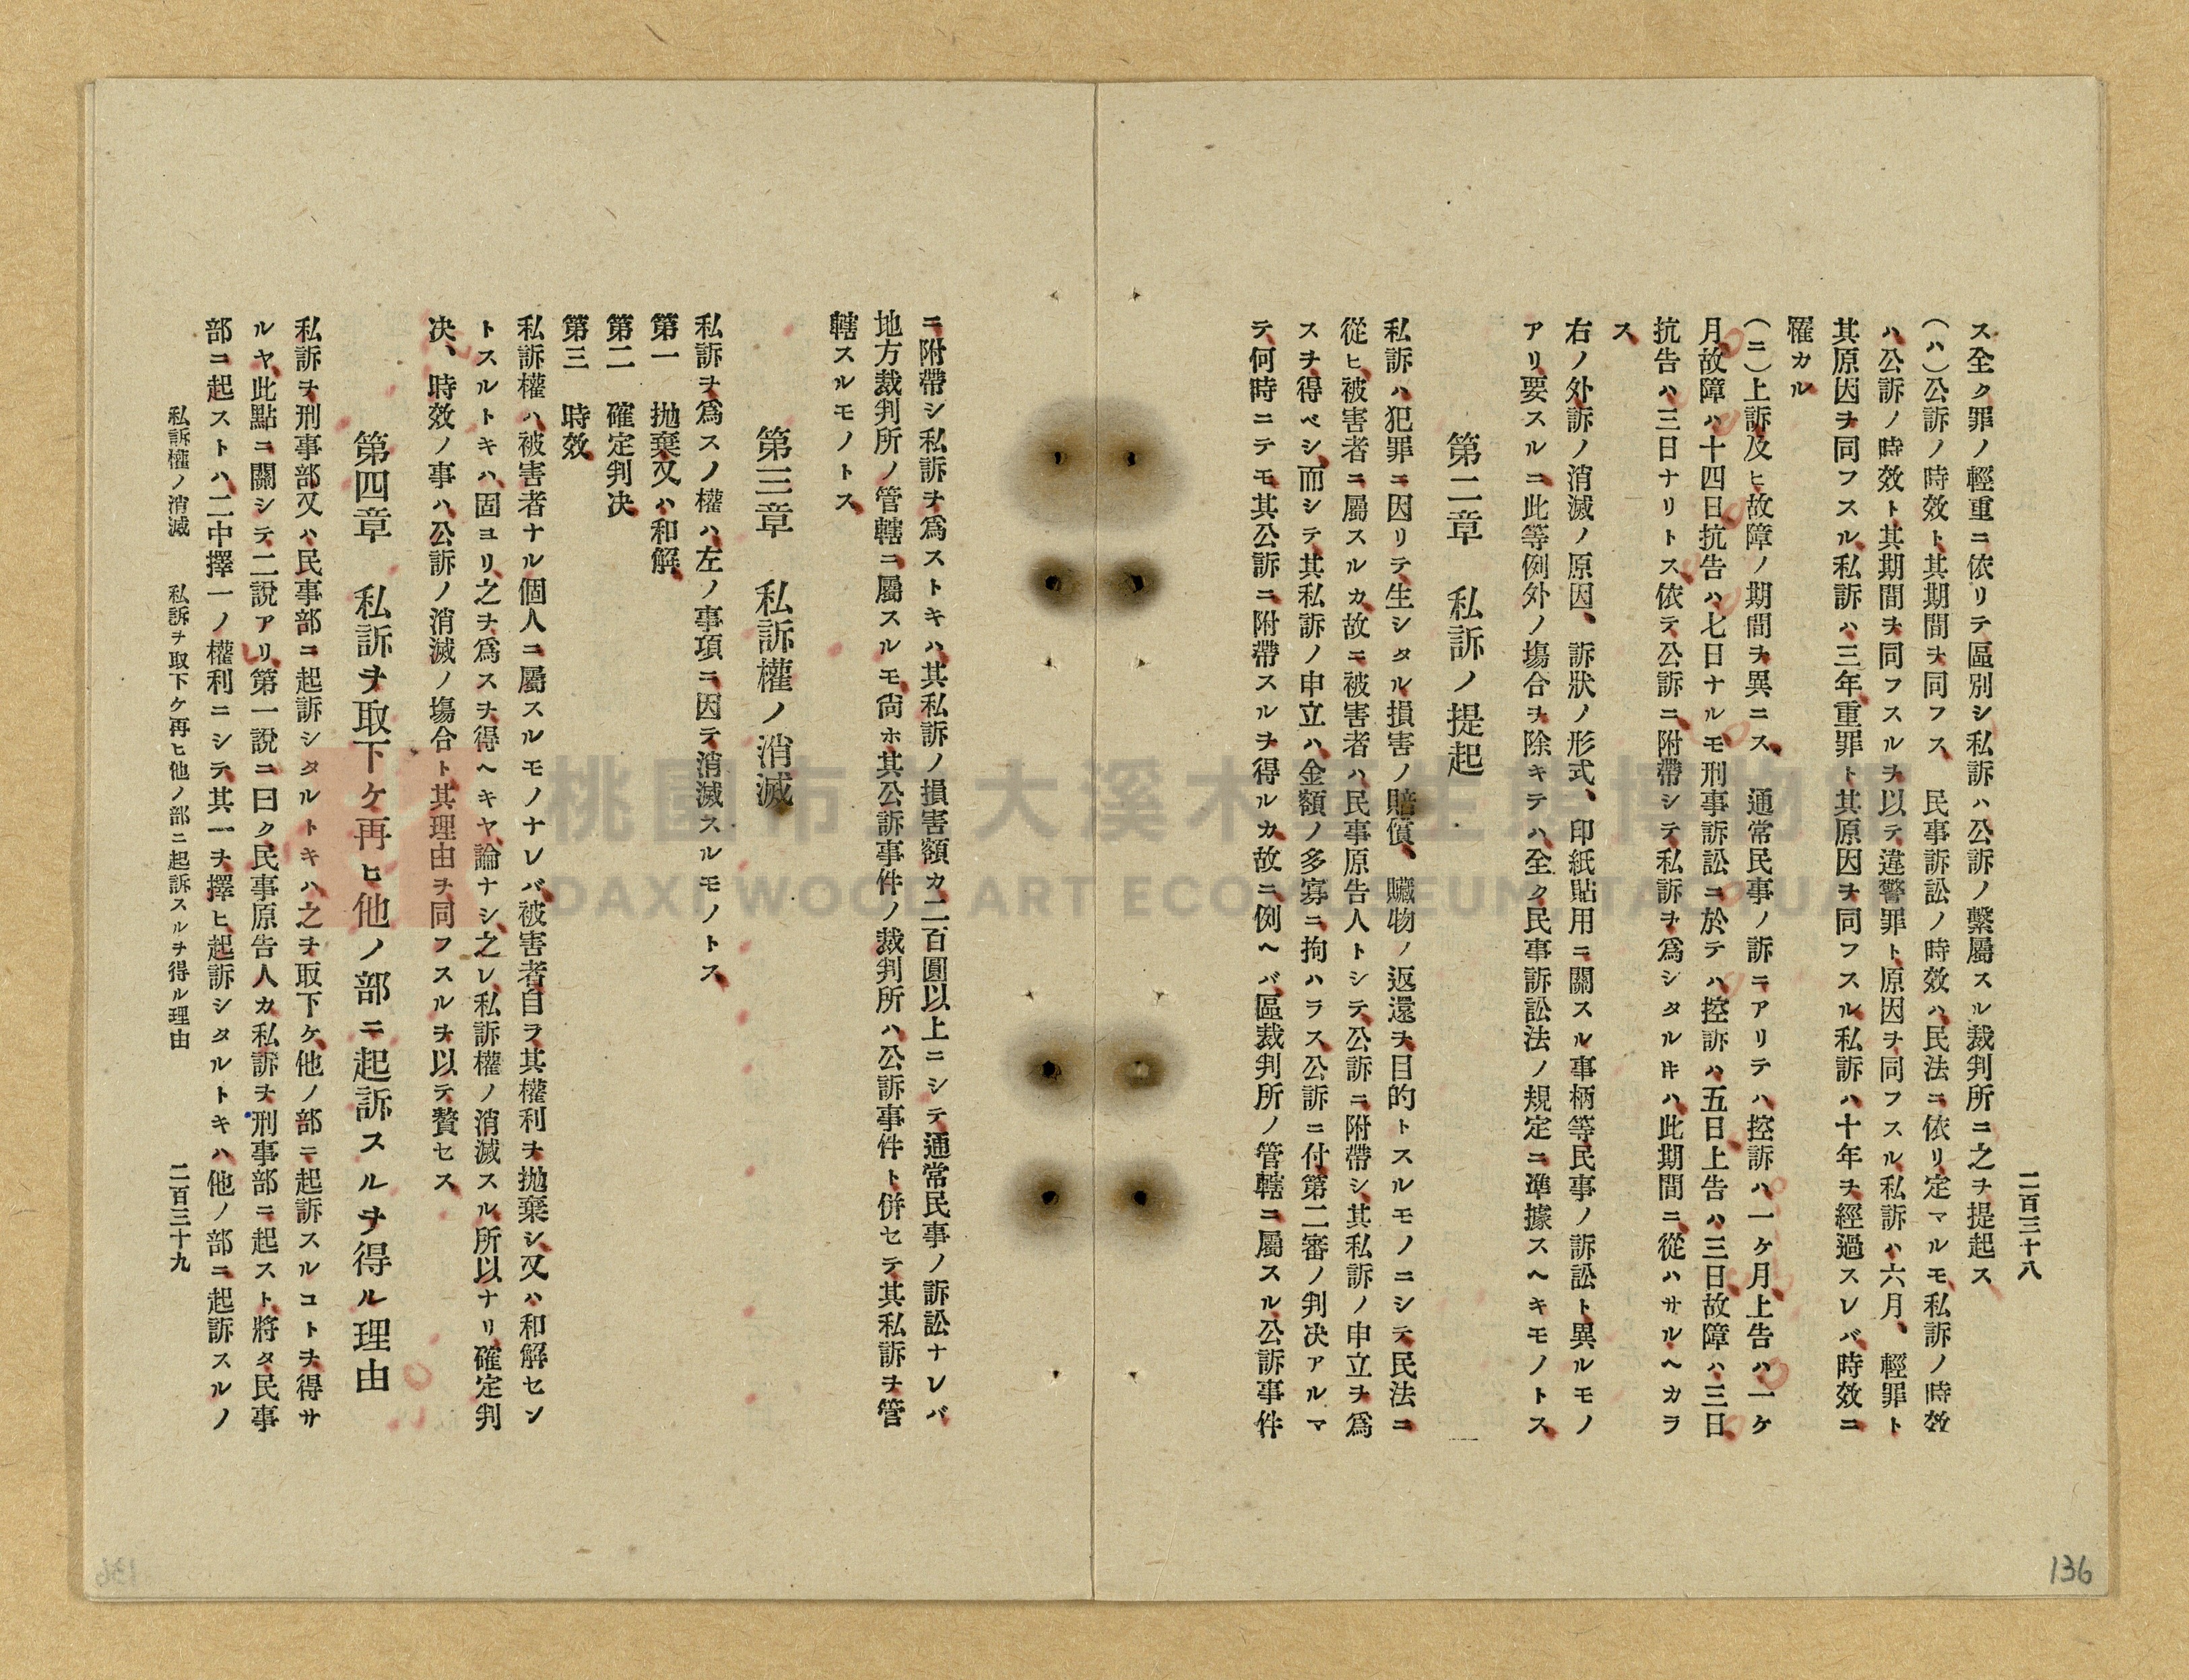 二百三十八
ス全ク罪ノ輕重ニ依リテ區別シ私訴ハ公訴ノ繫屬スル裁判所ニ之ヲ提起ス
(ハ)公訴ノ時效ト其期間ヲ同フス　民事訴訟ノ時效ハ民法ニ依リ定マルモ私訴ノ時效
ハ公訴ノ時效ト其期間ヲ同フスルヲ以テ違警罪ト原因ヲ同フスル私訴ハ六月、輕罪ト
其原因ヲ同フスル私訴ハ三年重罪ト其原因ヲ同フスル私訴ハ十年ヲ經過スレバ時效ニ
罹カル
(ニ)上訴及ヒ故障ノ期間ヲ異ニス　通常民事ノ訴ニアリテハ控訴ハ一ケ月上告ハ一ケ
月故障ハ十四日抗告ハ七日ナルモ刑事訴訟ニ於テハ控訴ハ五日上告ハ三日故障ハ三日
抗告ハ三日ナリトス依テ公訴ニ附帶シテ私訴ヲ爲シタルキハ此期間ニ從ハサルヘカラ
ス
右ノ外訴ノ消滅ノ原因、訴狀ノ形式、印紙貼用ニ關スル事柄等民事ノ訴訟ト異ルモノ
アリ要スルニ此等例外ノ塲合ヲ除キテハ全ク民事訴訟法ノ規定ニ準據スヘキモノトス
第二章　私訴ノ提起
私訴ハ犯罪ニ因リテ生シタル損害ノ賠償、贓物ノ返還ヲ目的トスルモノニシテ民法ニ
從ヒ被害者ニ屬スルカ故ニ被害者ハ民事原告人トシテ公訴ニ附帶シ其私訴ノ申立ヲ爲
スヲ得ベシ而シテ其私訴ノ申立ハ金額ノ多寡ニ拘ハラス公訴ニ付第二審ノ判决アルマ
テ何時ニテモ其公訴ニ附帶スルヲ得ルカ故ニ例ヘバ區裁判所ノ管轄ニ屬スル公訴事件
ニ附帶シ私訴ヲ爲ストキハ其私訴ノ損害額カ二百圓以上ニシテ通常民事ノ訴訟ナレバ
地方裁判所ノ管轄ニ屬スルモ尙ホ其公訴事件ノ裁判所ハ公訴事件ト併セテ其私訴ヲ管
轄スルモノトス
第三章　私訴權ノ消滅
私訴ヲ爲スノ權ハ左ノ事項ニ因テ消滅スルモノトス
第一　抛棄又ハ和解
第二　確定判决
第三　時效
私訴權ハ被害者ナル個人ニ屬スルモノナレバ被害者自ラ其權利ヲ抛棄シ又ハ和解セン
トスルトキハ固ヨリ之ヲ爲スヲ得ヘキヤ論ナシ之レ私訴權ノ消滅スル所以ナリ確定判
决、時效ノ事ハ公訴ノ消滅ノ塲合ト其理由ヲ同フスルヲ以テ贅セス
第四章　私訴ヲ取下ケ再ヒ他ノ部ニ起訴スルヲ得ル理由
私訴ヲ刑事部又ハ民事部ニ起訴シタルトキハ之ヲ取下ケ他ノ部ニ起訴スルコトヲ得サ
ルヤ此點ニ關シテ二說アリ第一說ニ曰ク民事原告人カ私訴ヲ刑事部ニ起スト將タ民事
部ニ起ストハ二中擇一ノ權利ニシテ其一ヲ擇ヒ起訴シタルトキハ他ノ部ニ起訴スルノ
私訴權ノ消滅　私訴ヲ取下ケ再ヒ他ノ部ニ起訴スルヲ得ル理由
二百三十九
136
桃園市立大溪木藝生態博物館
DAXI WOOD ART ECOMUSEUM, TAOYUAN